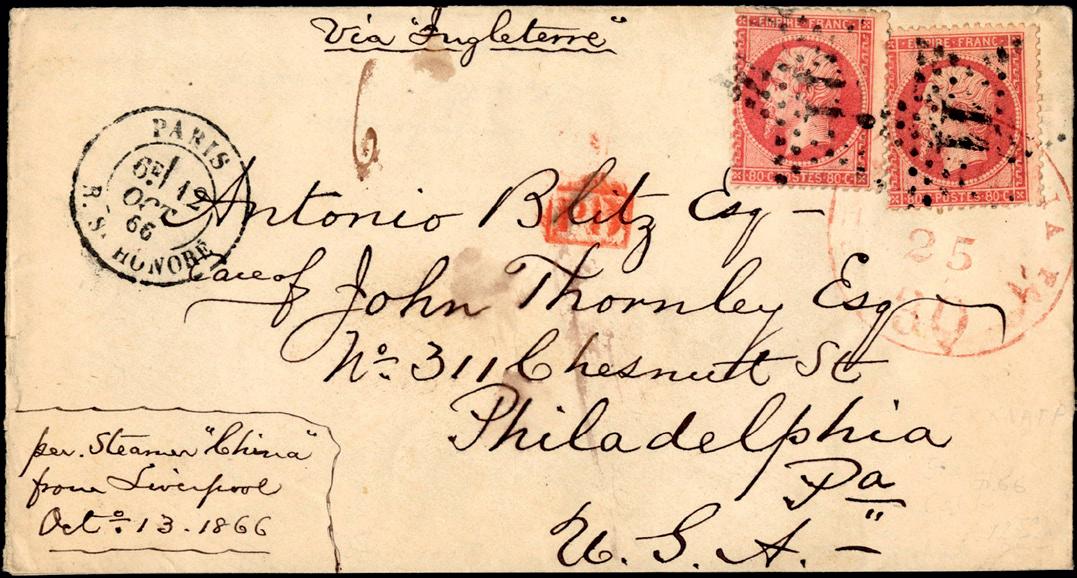 Via "Ingleterre"
6
EMPIRE FRANC
80 C POSTES 80 C
EMPIRE FRANC
80 C POSTES 80 C
PARIS
12
OCT
66
R. St HONORÉ
Antonio Blitz Esq -
PD
25
Care of
John Thornley Esq
No. 311 Chesnutt St
Philadelphia
Pa
U. S. A. -"
per. Steamer "China"
from Liverpool
Octo. 13. 1866